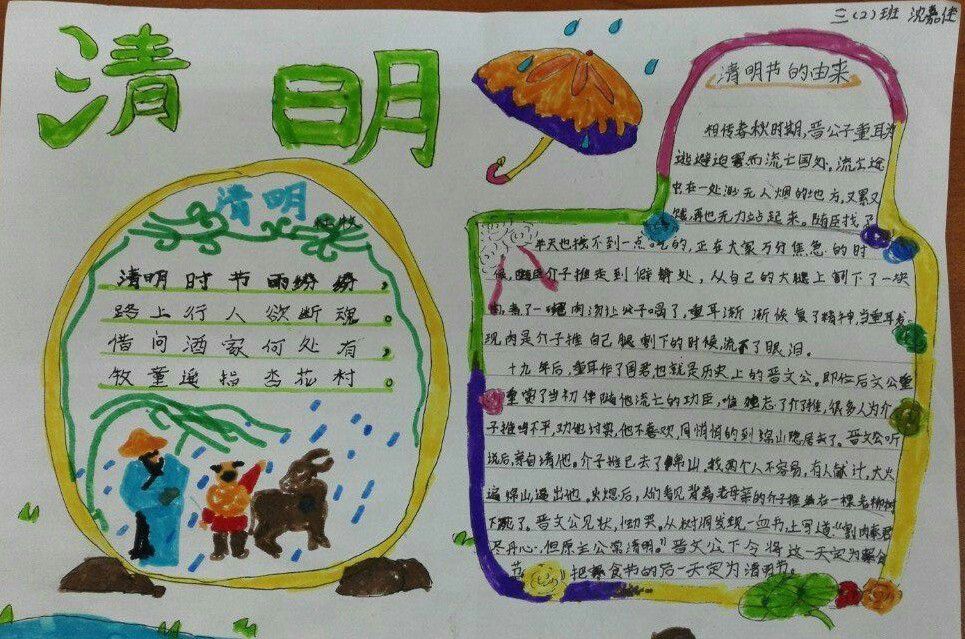 三(2)班 沈嘉佳
清明
清明
杜牧
清明时节雨纷纷,
路上行人欲断魂。
借问酒家何处有,
牧童遥指杏花村。
清明节的由来
相传春秋时期,晋公子重耳为
逃避迫害而流亡国外。流亡途
中在一处渺无人烟的地方,又累又
饿,再也无力站起来。随臣找了
半天也找不到一点吃的,正在大家万分焦急的时
候,随臣介子推走到僻静处,从自己的大腿上割下了一块
肉,煮了一碗肉汤让公子喝了,重耳渐渐恢复了精神,当重耳发
现肉是介子推自己腿割下的时候,流下了眼泪。
十九年后,重耳作了国君也就是历史上的晋文公。即位后文公重
重赏了当初伴随他流亡的功臣,唯独忘了介子推,很多人为介
子推鸣不平,劝他讨赏,他不喜欢,同悄悄的到绵山隐居去了。晋文公听
说后,亲自请他。介子推已去了绵山,找两个人不容易,有人献计,大火
逼绵山逼出他。火熄后,人们看见背着老母亲的介子推坐在一棵老柳树
下死了。晋文公见状,恸哭。从树洞发现一血书,上写道:“割肉奉君
尽丹心,但愿主公常清明。”晋文公下令将这一天定为寒食
节 把寒食节的后一天定为清明节。